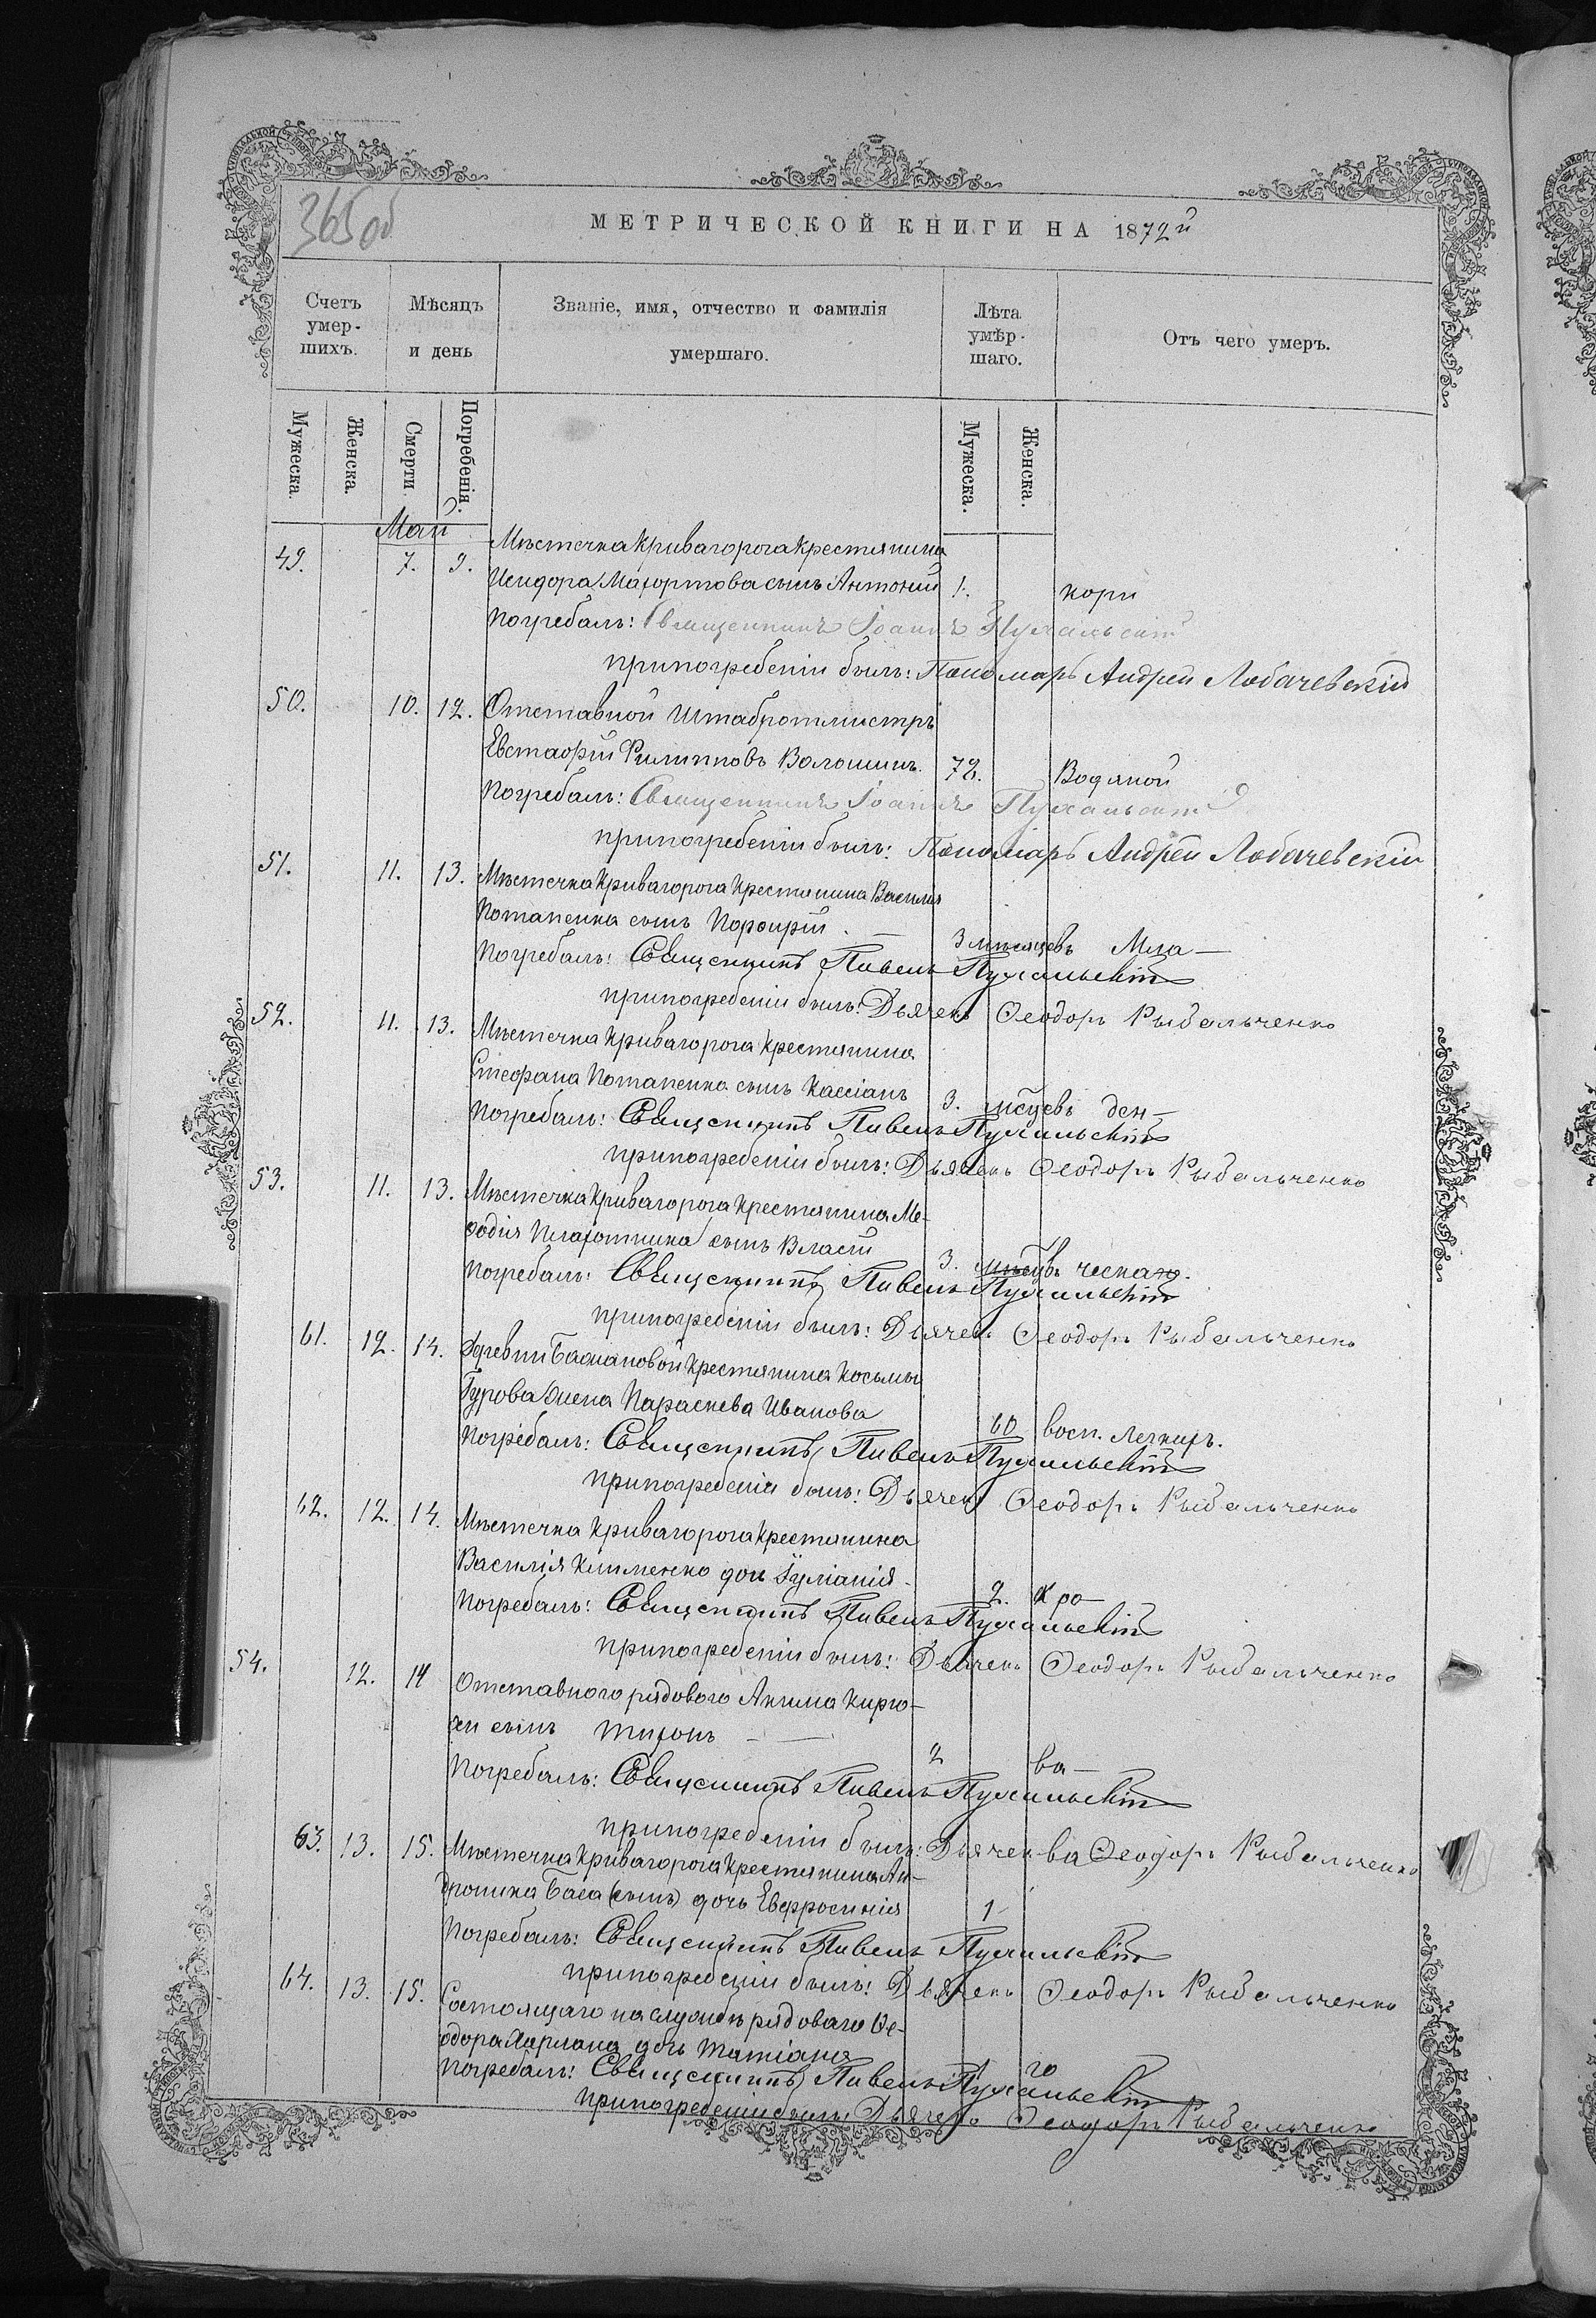 365об
МЕТРИЧЕСКОЙ КНИГИ НА 1872й
Счетъ умер-шихъ. Мѣсяцъ и день Званіе, имя, отчество и фамилія умершаго. Лѣта умѣр-шаго. Отъ чего умеръ.
Мужеска. Женска. Смерти. Погребенія. Мужеска. Женска.
Май
49. 7. 9. Мѣстечка Кривагорога Крестянина
Исидора Махортова сынъ Антоній 1. кори
Погребалъ: Священникъ Іоаннъ Пухальскій
при погребеніи былъ: Пономарь Андрей Лобачевскій
50. 10. 12. Отставной Штабротмистръ
Евстафій Филипповъ Волошинъ. 72. Водяной
Погребалъ: Священникъ Іоаннъ Пухальскій
при погребеніи былъ: Пономарь Андрей Лобачевскій
51. 11. 13. Мѣстечка Кривагорога Крестянина Василія
Потапенка сынъ Порфирій. — 3 мѣсяцевъ Мла—
Погребалъ: Священникъ Павелъ Пухальскій
при погребеніи былъ: Дьячекъ Ѳеодоръ Рыбальченко
52. 11. 13. Мѣстечка Кривагорога Крестянина
Стефана Потапенка сынъ Кассіанъ 3. мѣсцевъ ден—
Погребалъ: Священникъ Павелъ Пухальскій
при погребеніи былъ: Дьячекъ Ѳеодоръ Рыбальченко
53. 11. 13. Мѣстечка Кривагорога Крестянина Ме-
ѳодія Плахотника сынъ Власій 3. мѣсцвъ ческаго.
Погребалъ: Священникъ Павелъ Пухальскій
при погребеніи былъ: Дьячекъ Ѳеодоръ Рыбальченко
61. 12. 14. Деревни Баскановой Крестянина Косьмы
Гурова жена Параскева Иванова 60 восп. легкихъ.
Погребалъ: Священникъ Павелъ Пухальскій
при погребеніи былъ: Дьячекъ Ѳеодоръ Рыбальченко
62. 12. 14. Мѣстечка Кривагорога Крестянина
Василія Клименко доч Іуліанія. 2. Кро—
Погребалъ: Священникъ Павелъ Пухальскій
при погребеніи былъ: Дьячекъ Ѳеодоръ Рыбальченко
54. 12. 14 Отставного рядового Акима
сынъ Тихонъ — — 2 ва—
Погребалъ: Священникъ Павелъ Пухальскій
при погребеніи былъ: Дьячекъ ва Ѳеодоръ Рыбальченко
63. 13. 15. Мѣстечка Кривагорога Крестянина Ан-
дроника Баса (сынъ) дочь Евфросинія 1
Погребалъ: Священникъ Павелъ Пухальскій
при погребеніи былъ: Дьячекъ Ѳеодоръ Рыбальченко
64. 13. 15. Состоящаго на службѣ рядоваго Ѳе-
одора Харлана дочь Татіана 1 го
Погребалъ: Священникъ Павелъ Пухальскій
при погребеніи былъ: Дьячекъ Ѳеодоръ Рыбальченко